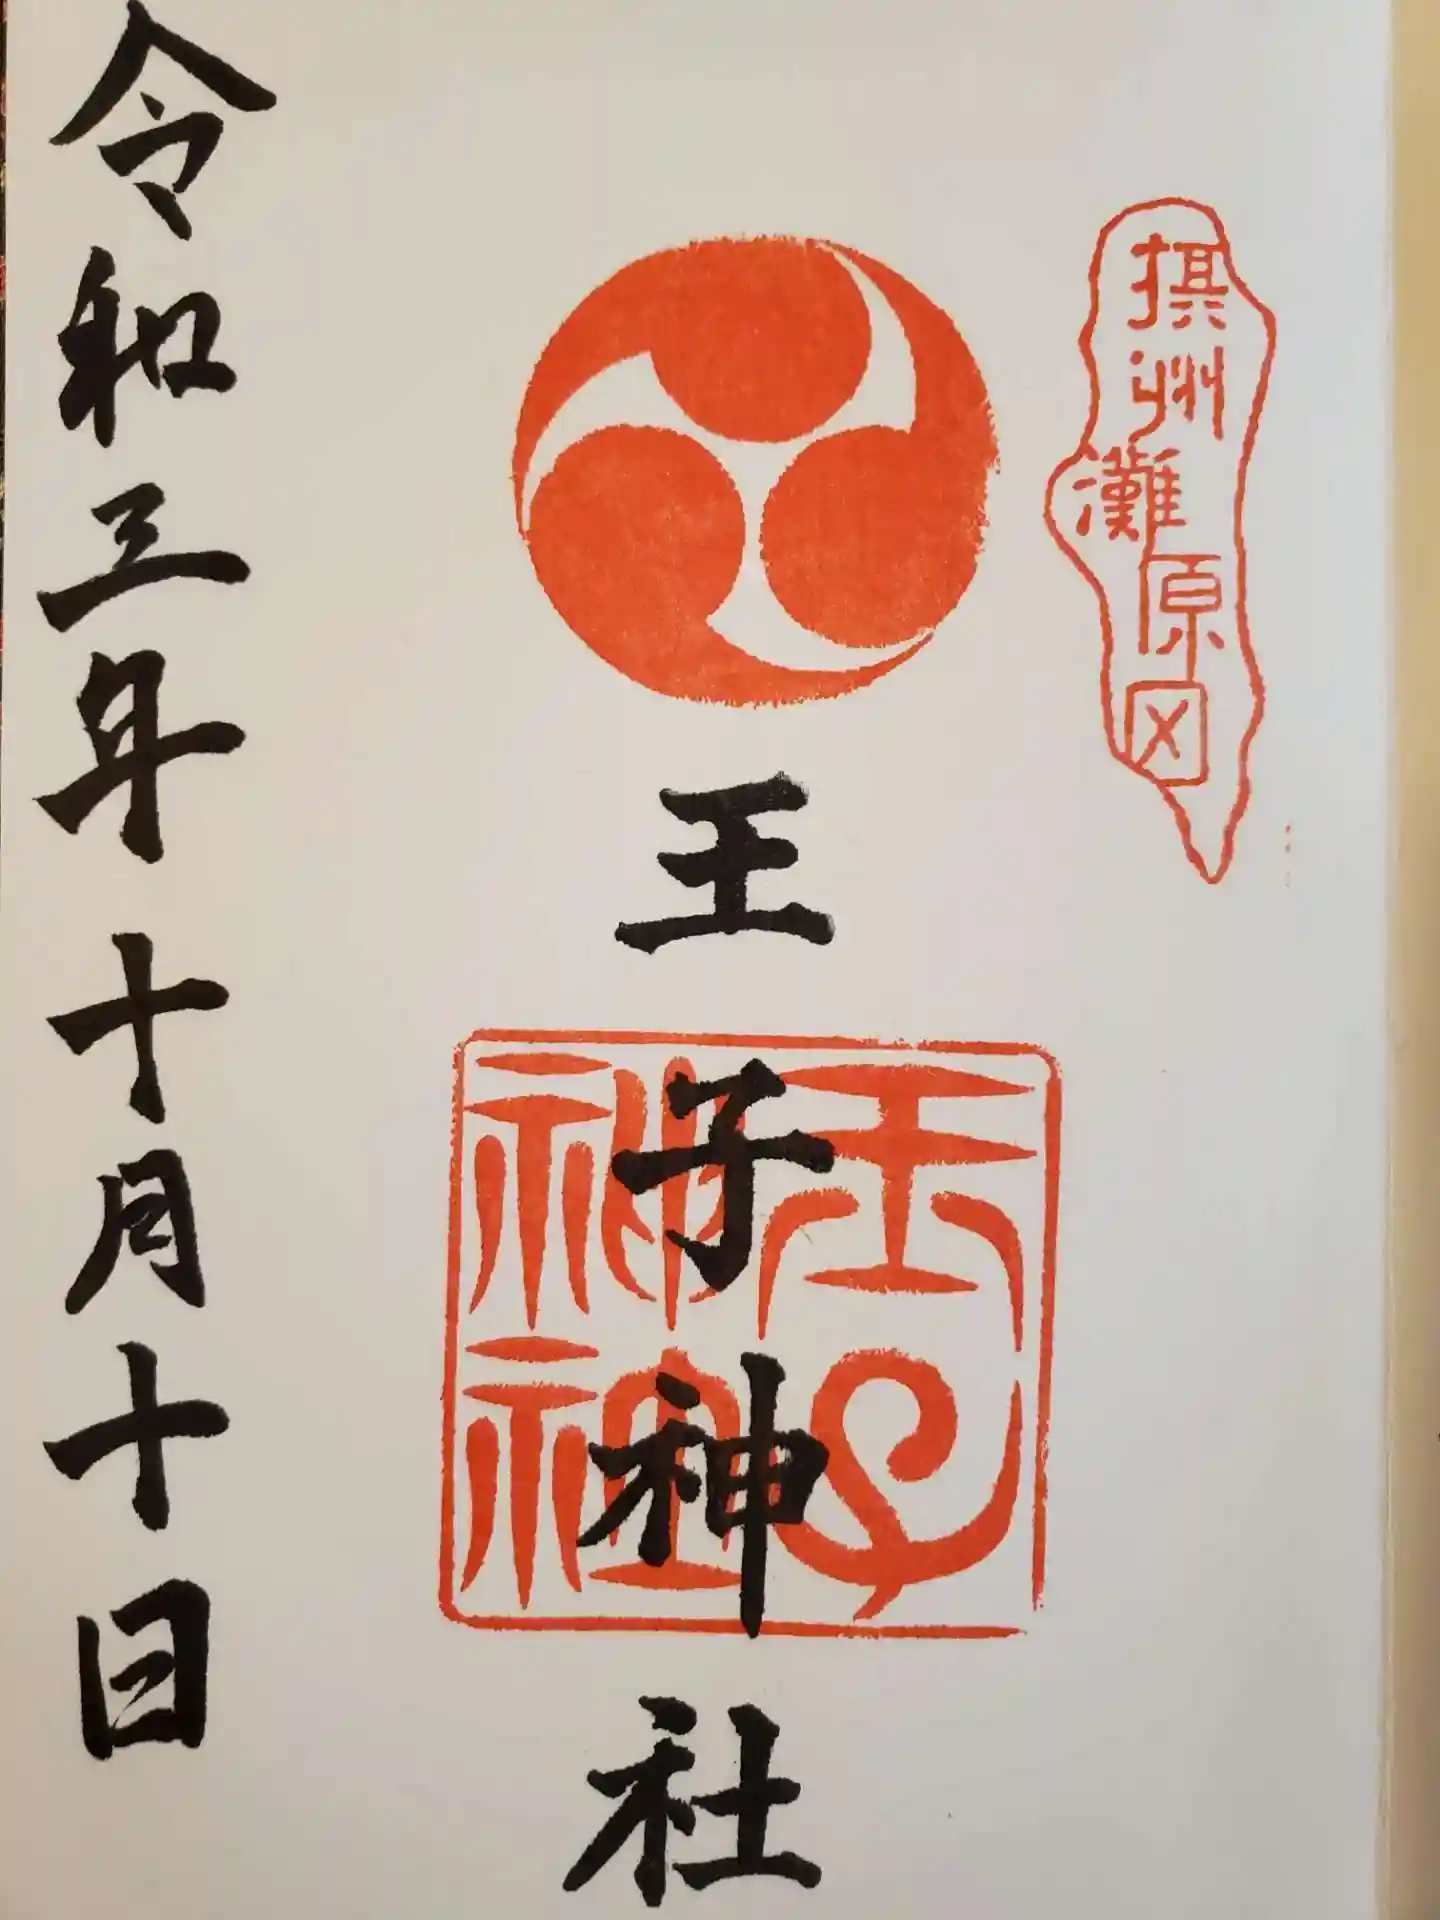 摂州灘原田
王子神社
王子
神社
令和三年十月十日